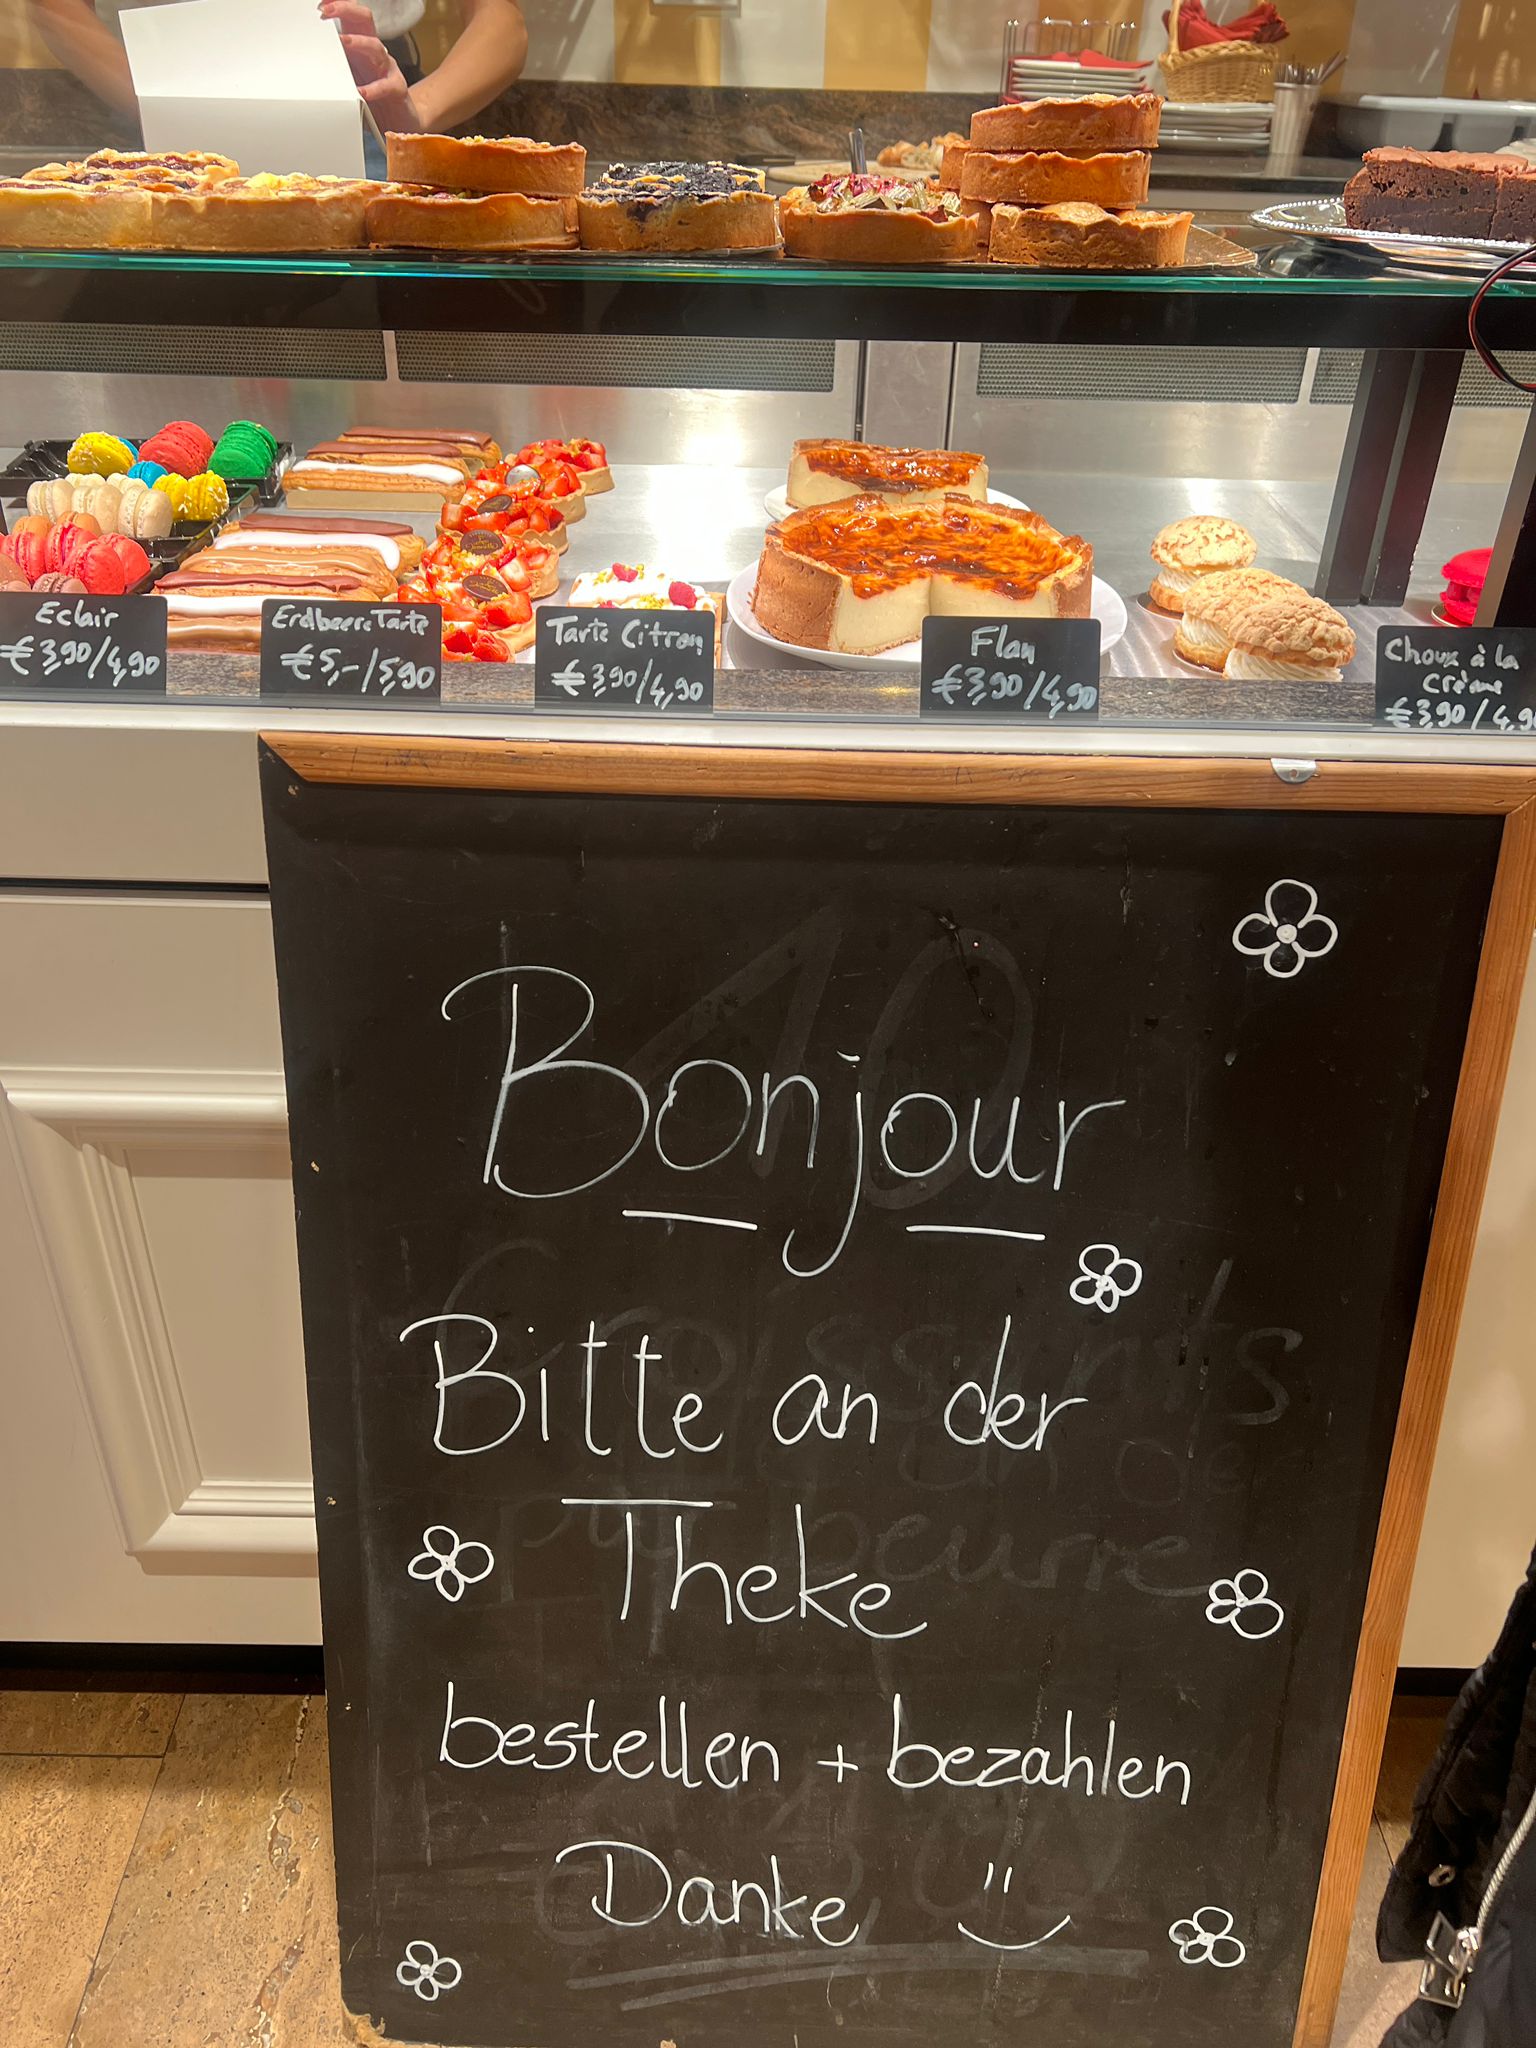 Eclair
€3,90/4,90
Erdbeere Tarte
€5,-/5,90
Tarte Citron
€3,90/4,90
Flan
€3,90/4,90
Choux à la
Crème
€3,90/4,90
Bonjour
Bitte an der
Theke
bestellen + bezahlen
Danke